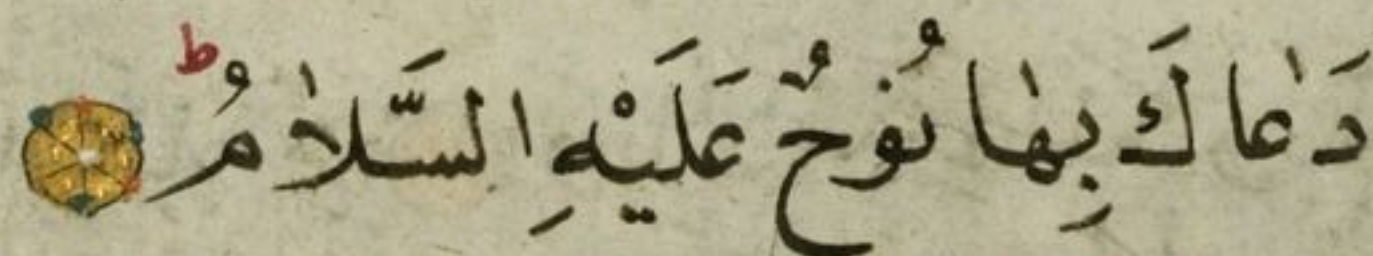 دَعَاكَ بِهَا نُوحٌ عَلَيْهِ السَّلَامُ ط